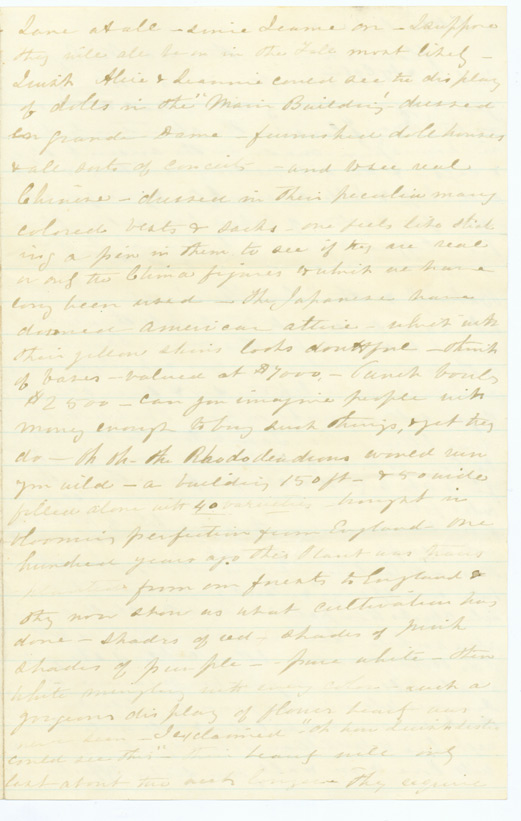 Lane at all - since I came on - I suppose
they will all be on in the Fall most likely -
I wish Alice & Jeannie could see the display
of dolls in the "Main Building" dressed
en grande Dame - furnished doll houses
& all sorts of conceits - and to see real
Chinese - dressed in their peculiar many
colored vests & sacks - one feels like stick
ing a pin in them to see if they are real
or only the China figures to which we have
long been used - The Japanese have
donned American attire - which with
their yellow skins looks doubtful - think
of vases - valued at $7000, - Punch bowls
$2500 - can you imagine people with
money enough to buy such things, & yet they
do - Oh oh the Rhododendrons would run
you wild - a building 150 ft - & 50 wide
filled alone with 40 varieties - brought in
blooming perfection from England - One
hundred years ago this Plant was trans
from our forests to England &
they now show us what cultivation has
done - shades of red - shades of pink
shades of purple - pure white - then
white mingling with every - such a
gorgeous display of flower beauty was
never seen - I exclaimed "oh how
could see this" - their beauty will only
last about two weeks longer They require